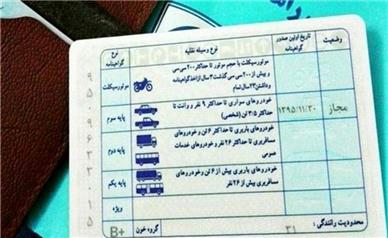 وضعیت
تاریخ اولین صدور گواهینامه
نوع وسیله نقلیه
نوع گواهینامه
موتورسیکلت با حجم موتور تا حداکثر ۲۰۰ سی سی
و بیش از ۲۰۰ سی سی گذشت ۲ سال از اخذ گواهینامه
و داشتن ۲۳ سال تمام
موتورسیکلت
مجاز
۱۳۹۵/۱۱/۳۰
خودروهای سواری تا حداکثر ۹ نفر و وانت تا
حداکثر ۳/۵ تن (شخصی)
پایه سوم
خودروهای باربری تا حداکثر ۶ تن و خودروهای
مسافربری تا حداکثر ۲۶ نفر و خودروهای خدمات
عمومی
پایه دوم
خودروهای باربری بیش از ۶ تن و خودروهای
مسافربری بیش از ۲۶ نفر
پایه یکم
ویژه
محدودیت رانندگی :
۳۱
گروه خون
B+